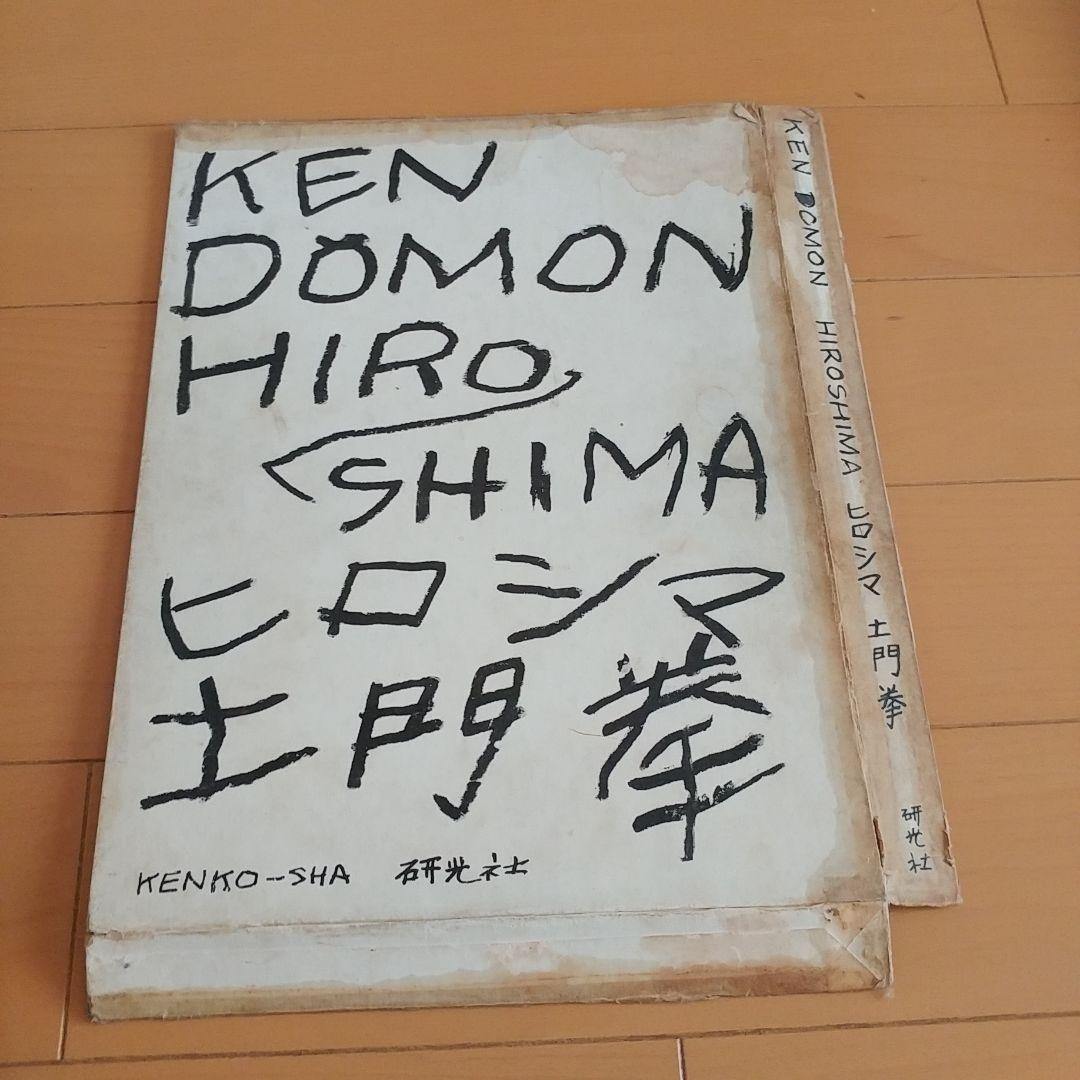 KEN
DOMON
HIRO
SHIMA
ヒロシマ
土門拳
KENKO-SHA 研光社
KEN DOMON HIROSHIMA ヒロシマ 土門拳 研光社